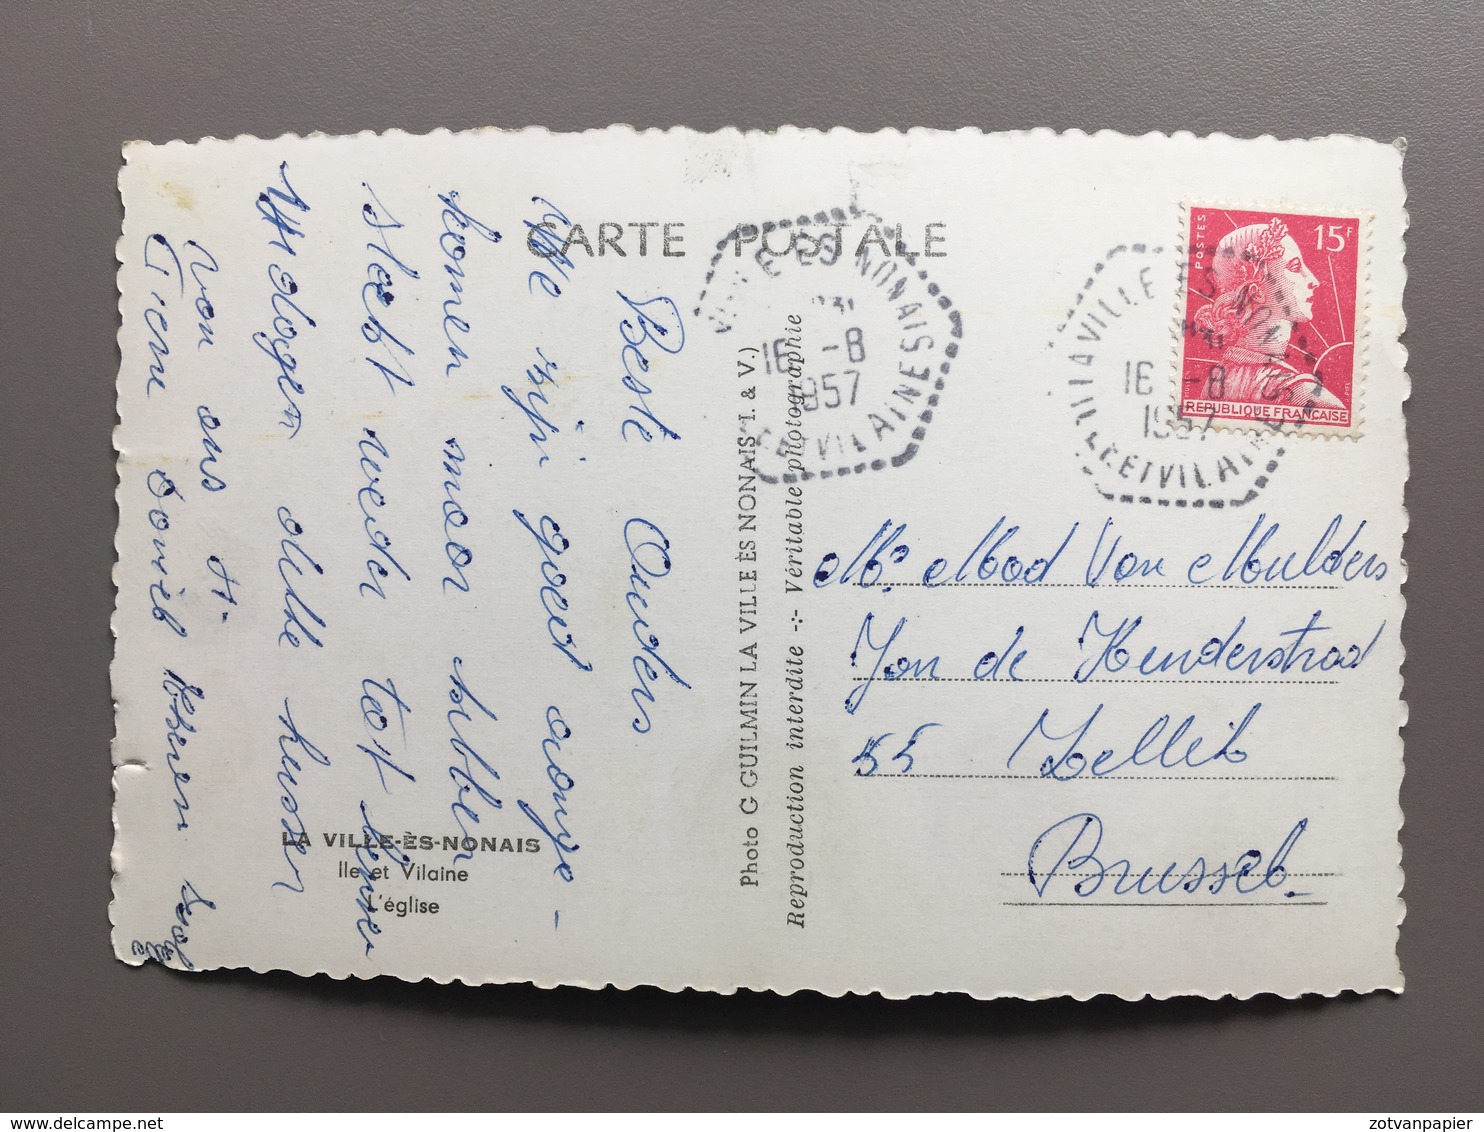 CARTE POSTALE
Beste Ouders
We zijn goed aange-
komen maar hebben
slecht weder tot hier
Wologen alle kussen
van ons 4-
Tiene Daniël
LA VILLE-ÈS-NONAIS
Ile et Vilaine
L'église
Photo G GUILMIN LA VILLE ÈS NONAIS (I. & V.)
Reproduction interdite ⊹ Véritable photographie
VILLE ES NONAIS
16 -8
1957
ILLE ET VILAINE
LA VILLE ES NONAIS
16 -8
1957
ILLE ET VILAINE
POSTES
15F
REPUBLIQUE FRANCAISE
Mr. Mad Van Mulders
Jan de Henderstraat
55 Zellik
Brussel
zotvanpapier